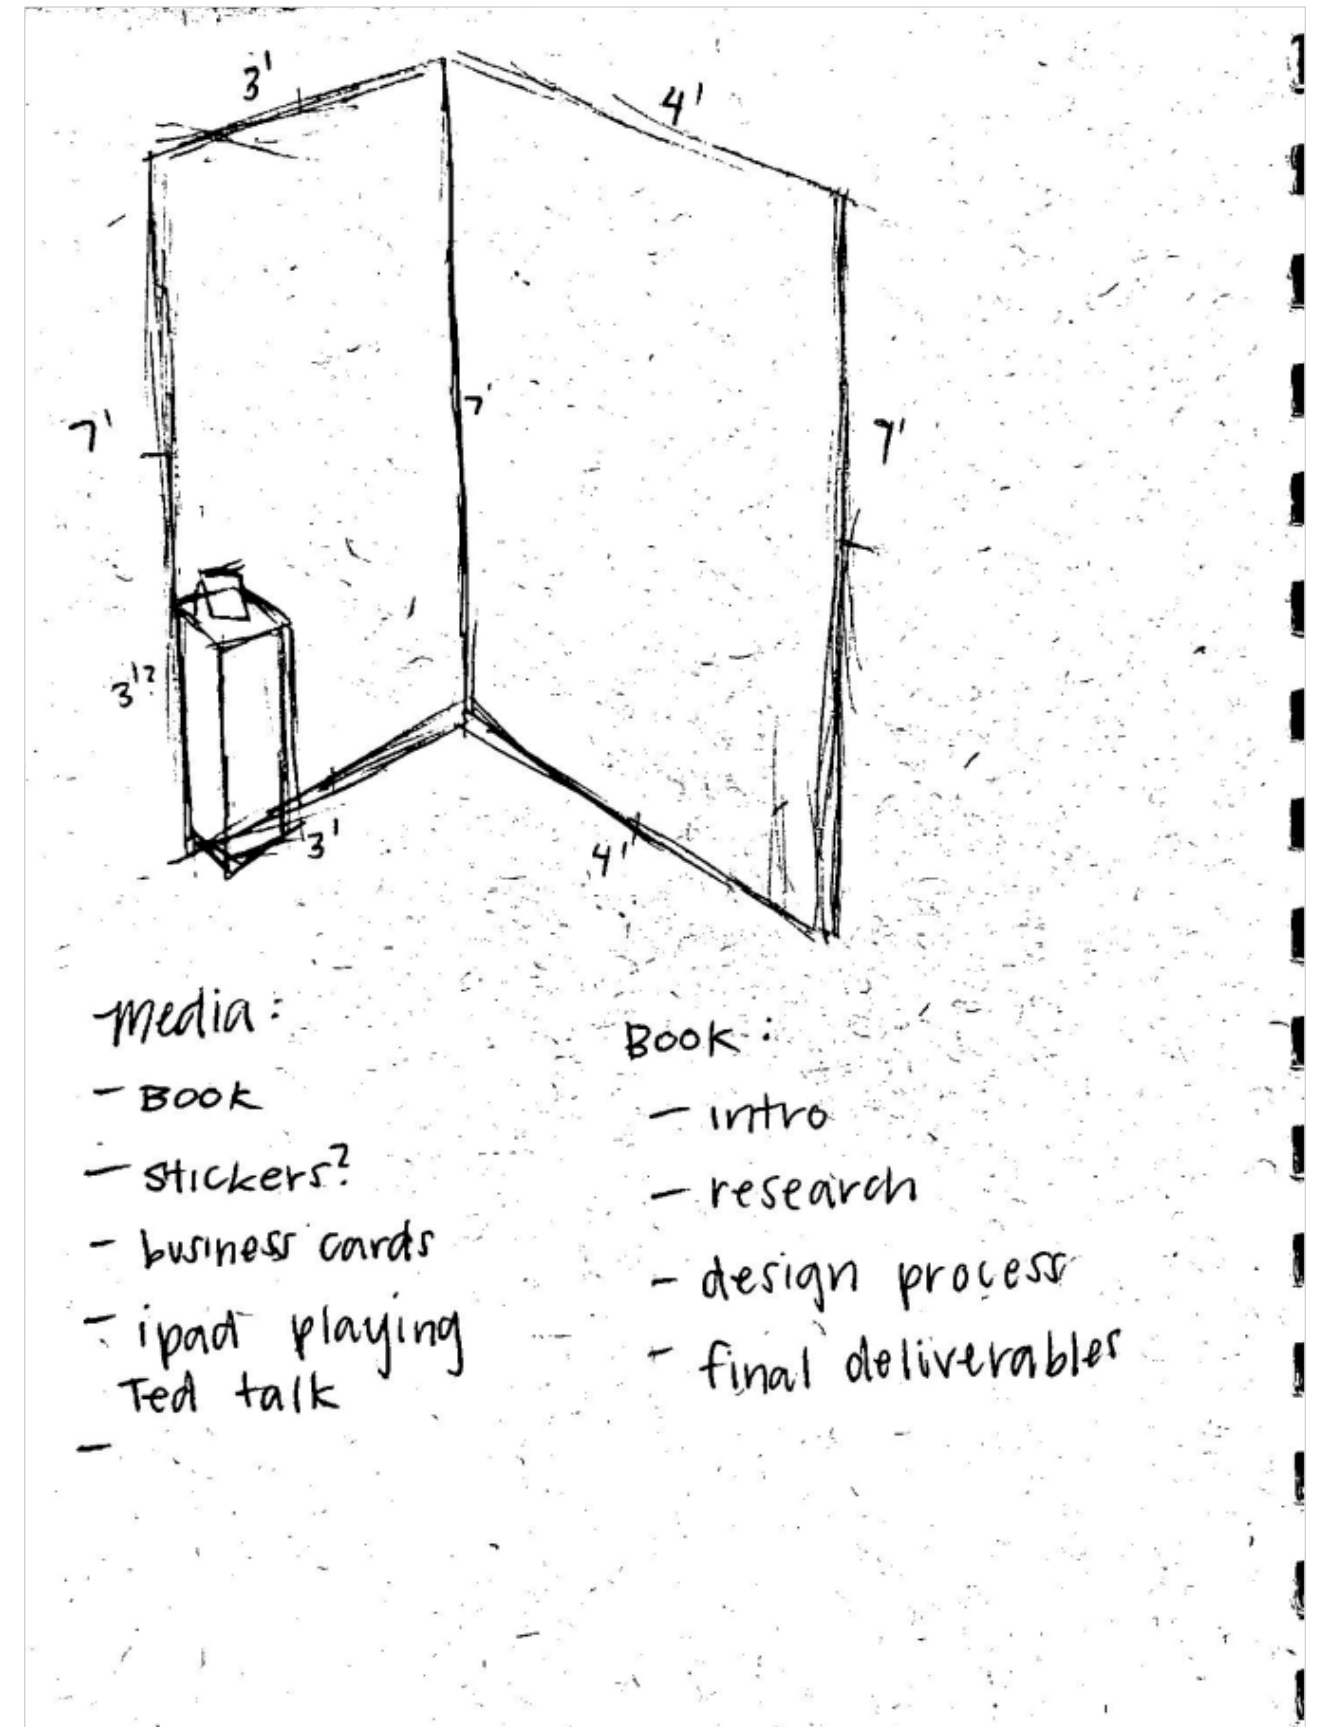 3'
4'
7'
7'
7'
3'?
3'
4'
media:
- BOOK
- stickers?
- business cards
- ipad playing
Ted talk
-
BOOK:
- intro
- research
- design process
- final deliverables